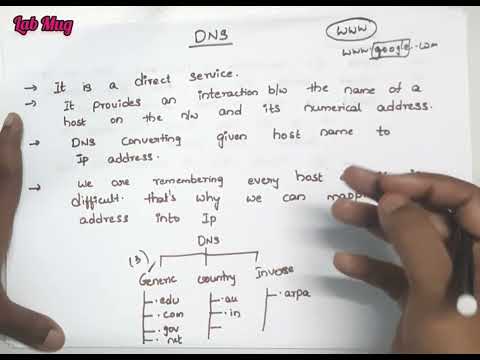 Lab Mug
DNS
www
www.google.com
→ It is a direct service.
→ It provides an interaction b/w the name of a
host on the n/w and its numerical address.
→ DNS converting given host name to
Ip address.
→ we are remembering every host
difficult. that's why we can
address into Ip
DNS
(3)
Generic country Inverse
.edu .au .arpa
.com .in
.gov
.net